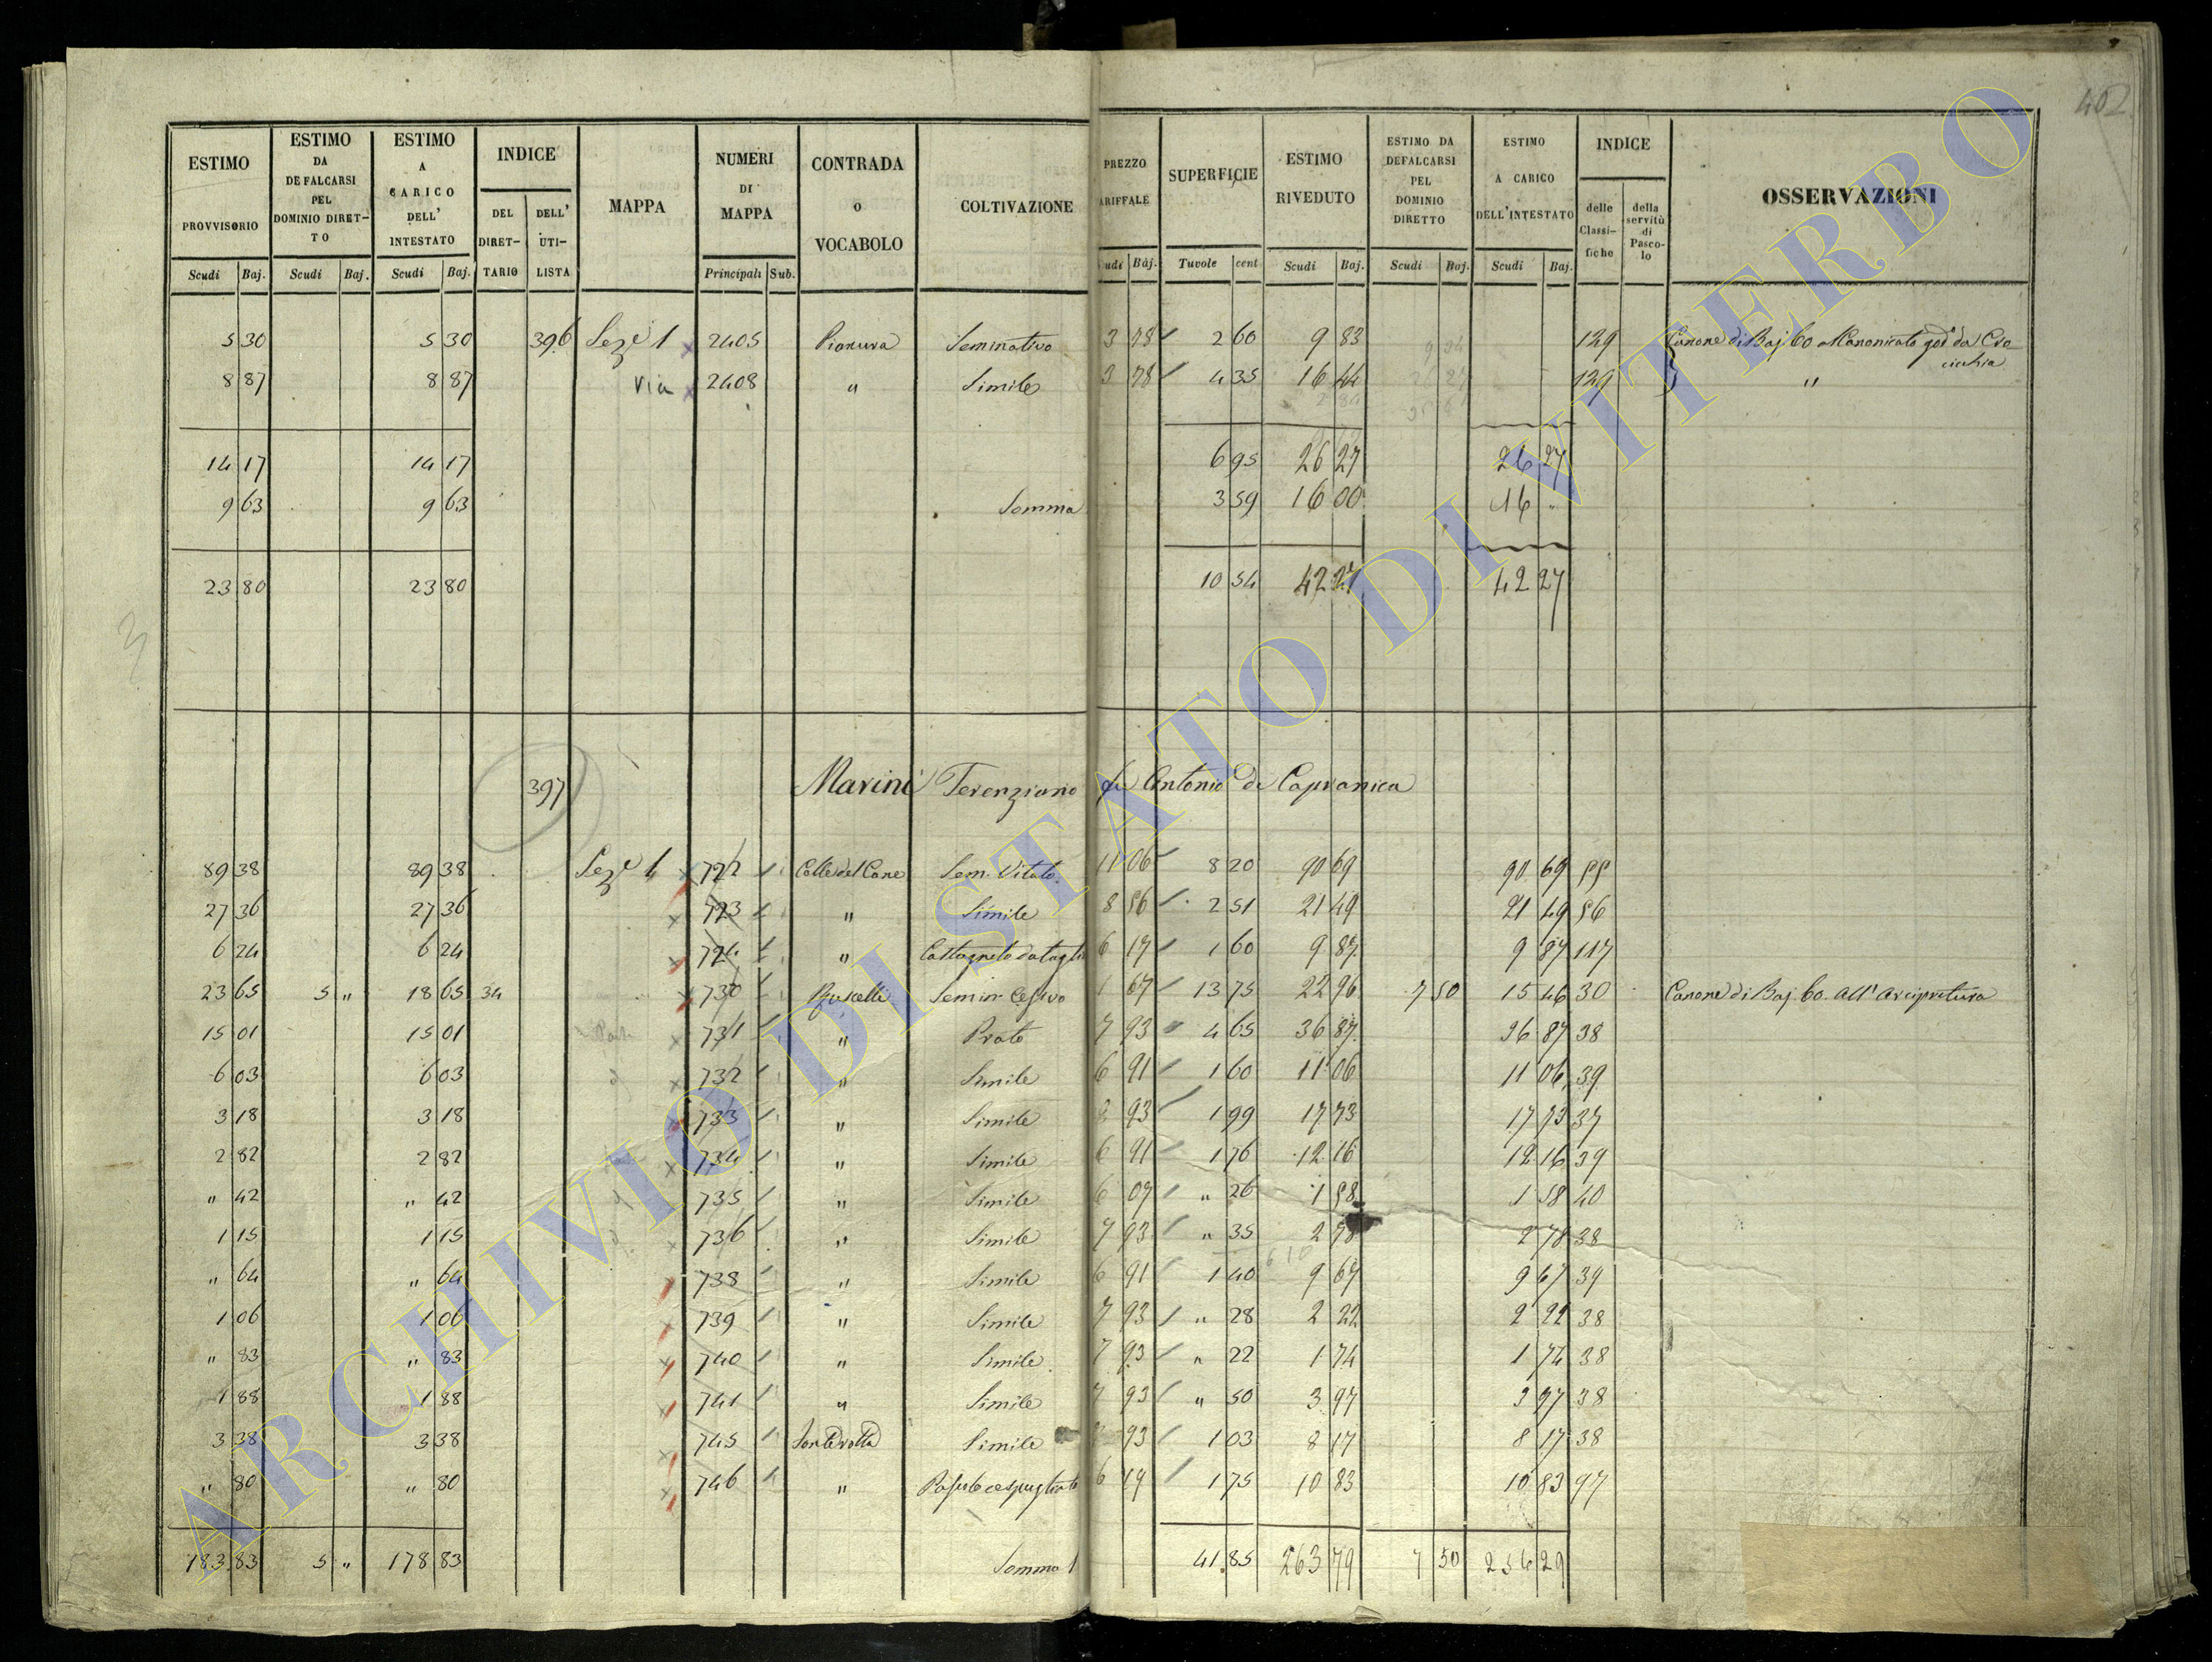 402
ESTIMO PROVVISORIO Scudi Baj.
ESTIMO DA DEFALCARSI PEL DOMINIO DIRETTO Scudi Baj.
ESTIMO A CARICO DELL' INTESTATO Scudi Baj.
INDICE DEL DIRETTARIO DELL' UTILISTA
MAPPA
NUMERI DI MAPPA Principali Sub.
CONTRADA O VOCABOLO
COLTIVAZIONE
PREZZO ARIFFALE udi Baj.
SUPERFICIE Tavole cent
ESTIMO RIVEDUTO Scudi Baj.
ESTIMO DA DEFALCARSI PEL DOMINIO DIRETTO Scudi Baj.
ESTIMO A CARICO DELL'INTESTATO Scudi Baj.
INDICE delle Classifiche della servitù di Pascolo
OSSERVAZIONI
5 30 5 30 396 Sez.e 1 2405 Pianura Seminativo 3 78 2 60 9 83 129 Canone di Baj 60
8 87 8 87 via 2408 " Simile 3 78 4 35 16 44 129 "
14 17 14 17 6 95 26 27 26 27
9 63 9 63 Somma 3 59 16 00 16 "
23 80 23 80 10 54 42 27 42 27
397 Marini Terenziano fu Antonio da Capranica
89 38 89 38 Sez.e 1 722 Colle del Cane Sem. Vitato 11 06 8 20 90 69 90 69 55
27 36 27 36 723 " Simile 8 56 2 51 21 49 21 49 56
6 24 6 24 724 " Castagneto da taglio 6 17 1 60 9 87 9 87 117
23 65 5 " 18 65 34 730 Semin. Cesivo 1 67 13 75 22 96 7 50 15 46 30 Canone di Baj. 60. All' Arcipretura
15 01 15 01 731 " Prato 7 93 4 65 36 87 36 87 38
6 03 6 03 732 " Simile 6 91 1 60 11 06 11 06 39
3 18 3 18 733 " Simile 93 1 99 17 73 17 73 37
2 82 2 82 734 " Simile 6 91 1 76 12 16 12 16 39
" 42 " 42 735 " Simile 6 07 " 26 1 58 1 58 40
1 15 1 15 736 " Simile 7 93 " 35 2 78 2 78 38
" 64 " 64 738 " Simile 6 91 1 40 9 67 9 67 39
1 06 1 06 739 " Simile 7 93 " 28 2 22 2 22 38
" 83 " 83 740 " Simile 7 93 " 22 1 74 1 74 38
1 88 1 88 741 " Simile 7 93 " 50 3 97 3 97 38
3 38 3 38 745 Simile 93 1 03 8 17 8 17 38
" 80 " 80 746 " 6 19 1 75 10 83 10 83 97
183 83 5 " 178 83 Somma 41 85 263 79 7 50 256 29
ARCHIVIO DI STATO DI VITERBO